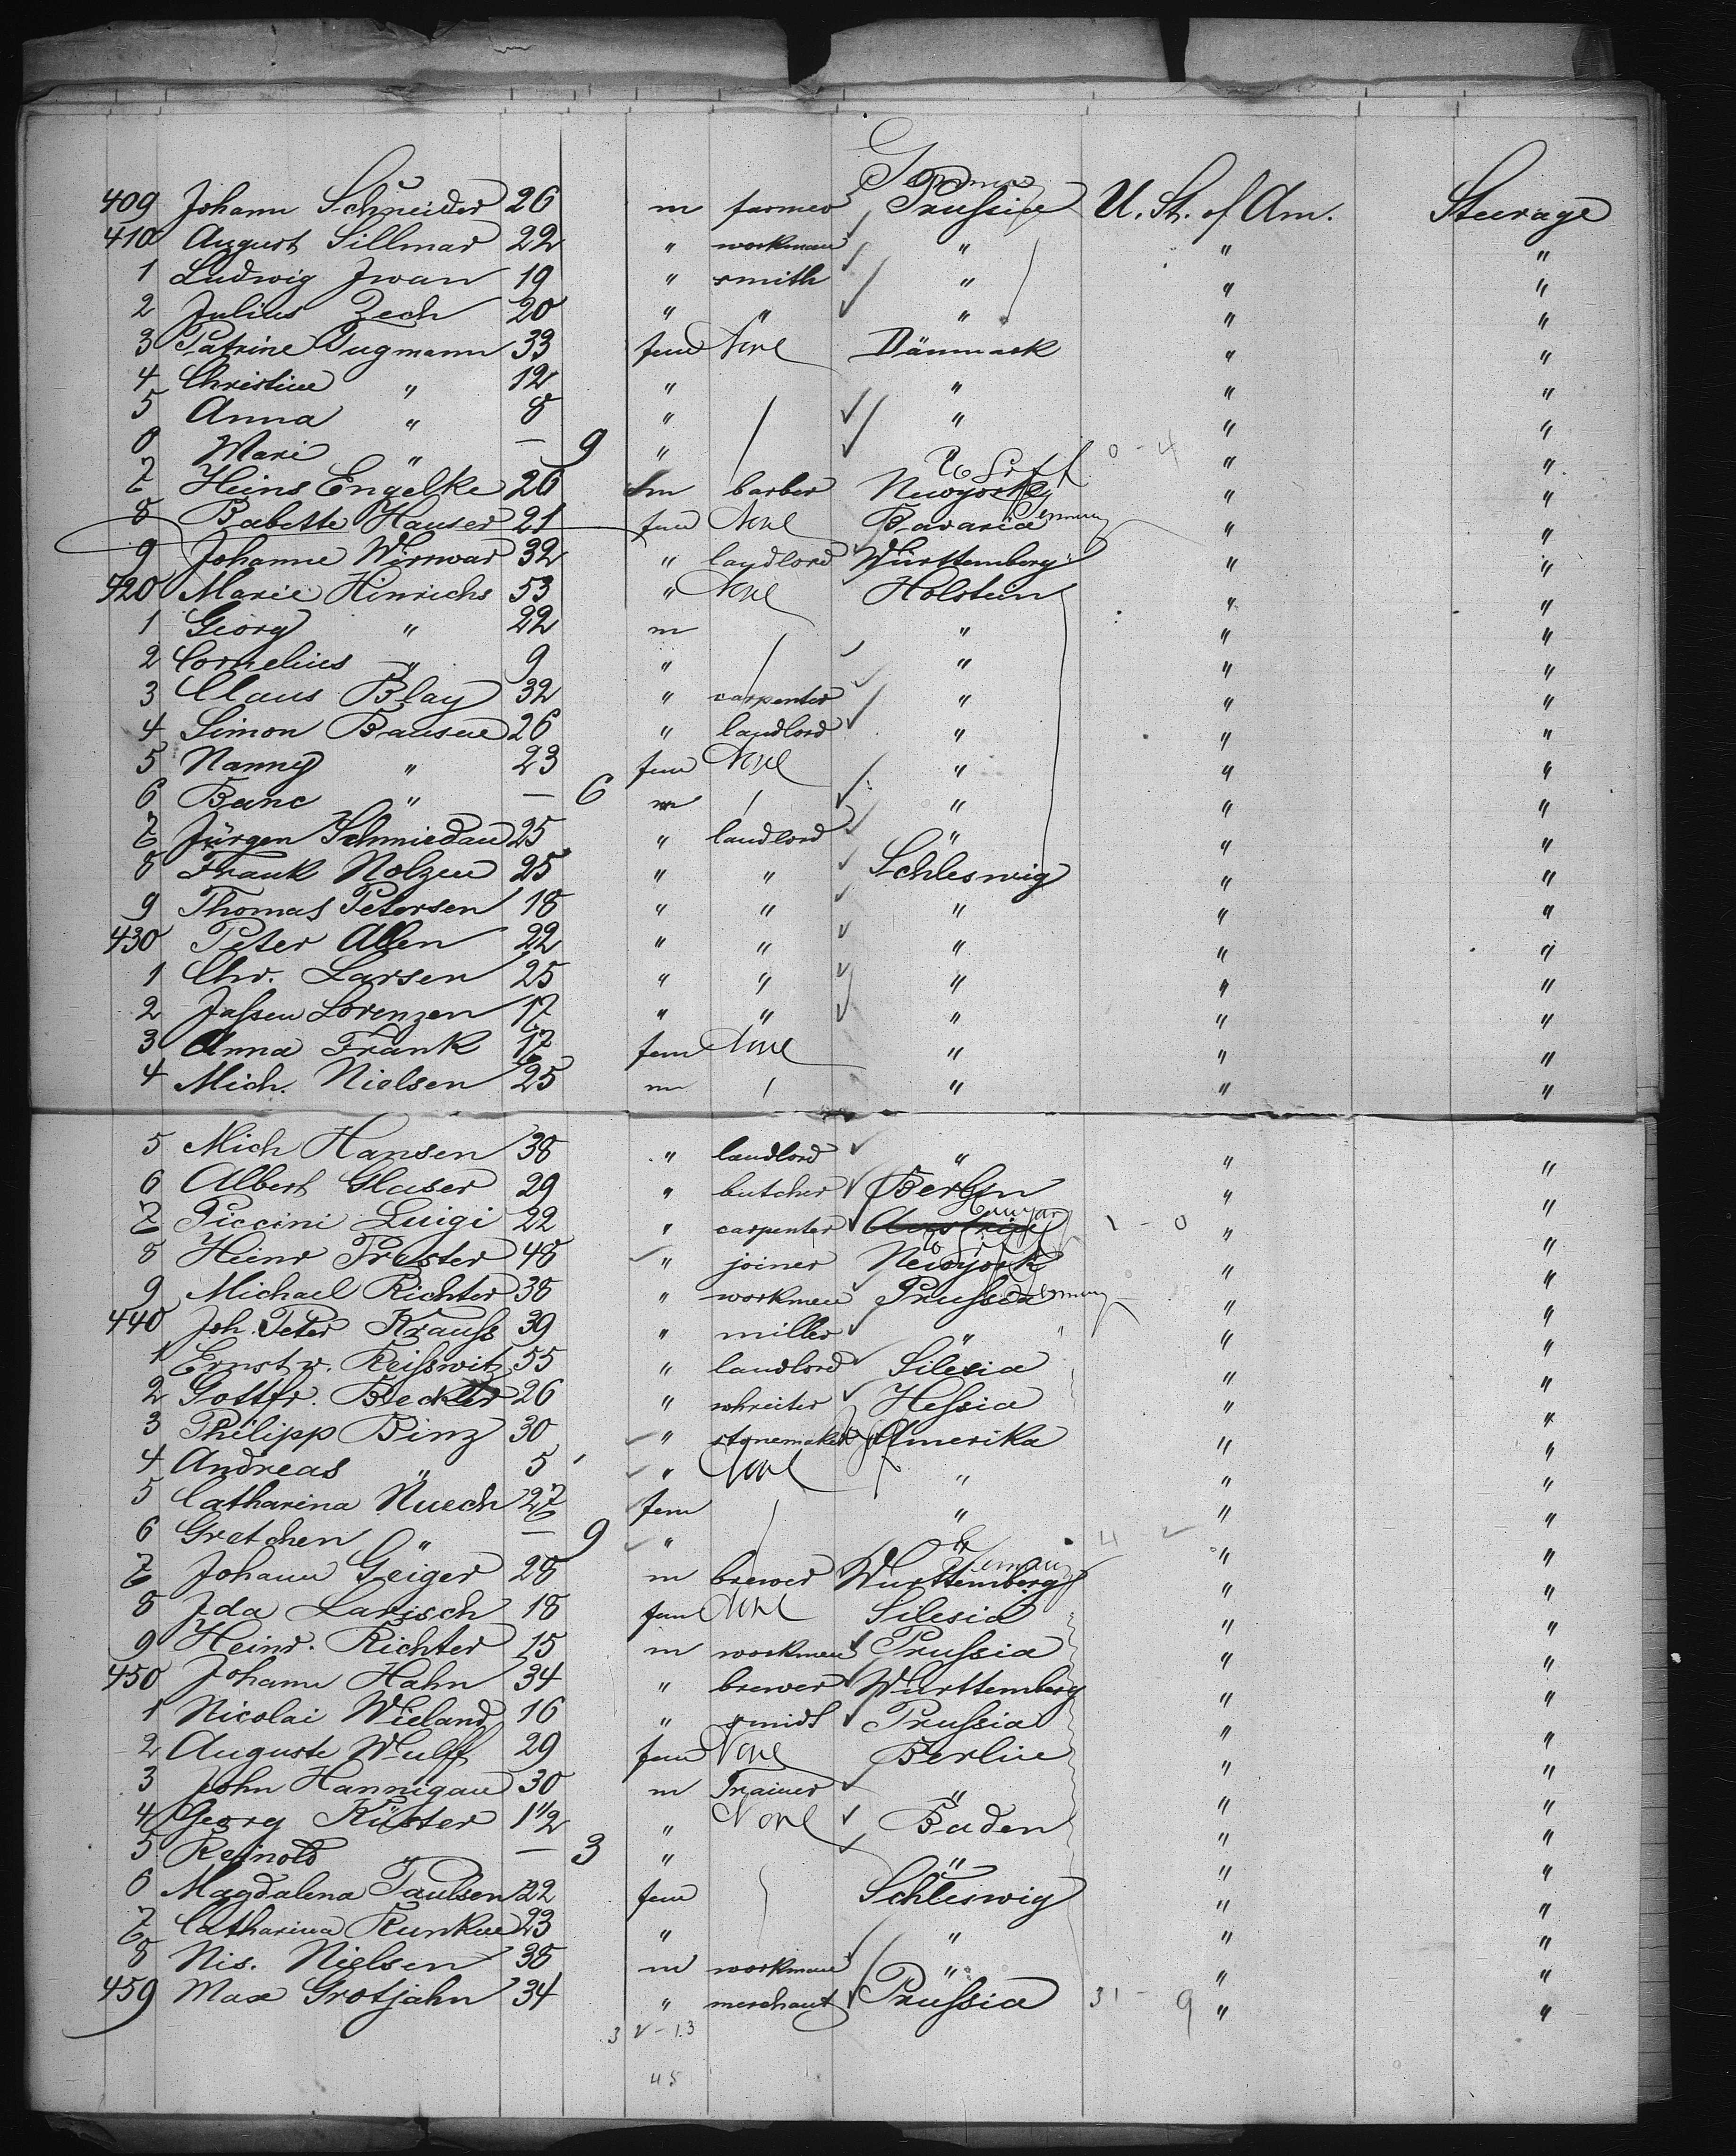 Germany
409 Johann Schneider 26 m farmer Prussia U. St. of Am. Steerage
410 August Sillmar 22 " workman " " "
1 Ludwig Iwan 19 " smith " " "
2 Julius Zech 20 " " " " "
3 Patrine Tugmann 33 fem None Dänmark " "
4 Christine " 12 " " " "
5 Anna " 8 " " " "
6 Mari " — 9 " " " "
7 Heins Engelke 26 m barber Newyork " "
8 Babette Hauser 21 fem None Bavaria Germany " "
9 Johanne Wirwar 32 " landlord Württemberg " "
420 Marie Hinrichs 53 " None Holstein " "
1 Georg " 22 m " " "
2 Cornelius " 9 " " " "
3 Claus Blay 32 " carpenter " " "
4 Simon Bausen 26 " landlord " " "
5 Nanny " 23 fem None " " "
6 Banc " — 6 m " " "
7 Jürgen Schmiedau 25 " landlord " " "
8 Frank Nolzen 25 " " Schleswig " "
9 Thomas Petersen 18 " " " " "
430 Peter Allen 22 " " " " "
1 Chr. Larsen 25 " " " " "
2 Jassen Lorenzen 17 " " " " "
3 Anna Frank 17 fem None " " "
4 Mich. Nielsen 25 m " " "
5 Mich Hansen 38 " landlord " " "
6 Albert Glaser 29 " butcher Berlin " "
7 Piccini Luigi 22 " carpenter Austria Hungary 1 - 0 " "
8 Heinr Prester 48 " joiner Newyork " "
9 Michael Richter 38 " workmen Prussia Germany " "
440 Joh. Peter Krauss 39 " miller " " "
1 Ernst v. Reisswitz 55 " landlord Silesia " "
2 Gottfr. Beckler 26 " whreiter Hessia " "
3 Philipp Binz 30 " stonemaker Amerika " "
4 Andreas " 5 " None " " "
5 Catharina Nuech 27 fem " " "
6 Gretchen " — 9 " " "
7 Johann Geiger 28 m brewer Württemberg Germany " "
8 Ida Larisch 18 fem None Silesia " "
9 Heinr. Richter 15 m workmen Prussia " "
450 Johann Hahn 34 " brewer Württemberg " "
1 Nicolai Wieland 16 " smidt Prussia " "
2 Auguste Wulff 29 fem None Berlin " "
3 John Hannigan 30 m Trainer " " "
4 Georg Küster 1 1/2 " None Baden " "
5 Reinold " — 3 " " " "
6 Magdalena Paulsen 22 fem Schleswig " "
7 Catharina Runkue 23 " " " "
8 Nis. Nielsen 38 m workman " " "
459 Max Grotjahn 34 " merchant Prussia 31 - 9 " "
32 - 13
45